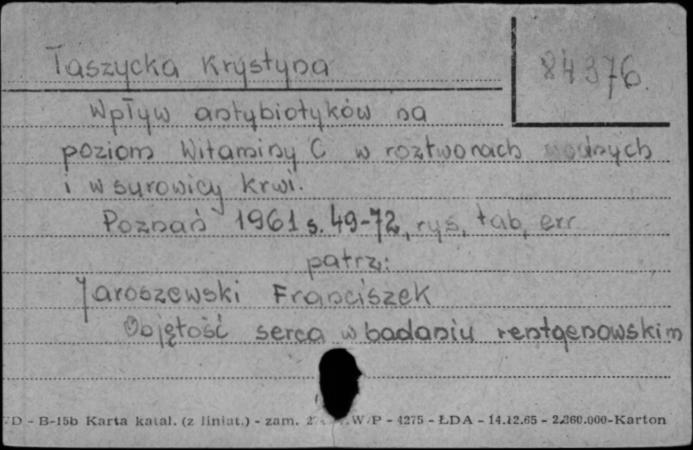 Taszycka Krystyna
84376
Wpływ antybiotyków na
poziom Witaminy C w roztworach wodnych
i w surowicy krwi.
Poznań 1961 s. 49-72, rys, tab, err
patrz:
Jaroszewski Franciszek
Objętość serca w badaniu rentgenowskim
D - B-15b Karta katal. (z liniat.) - zam. W/P - 4275 - ŁDA - 14.12.65 - 2.360.000-Karton